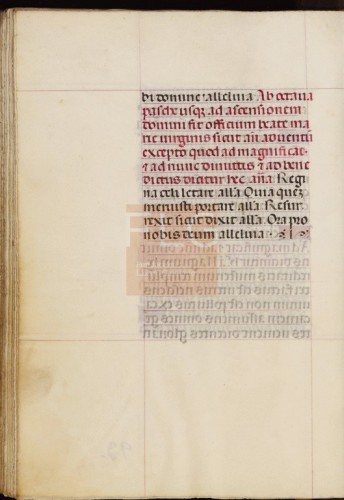 bi domine alleluia Ab octava
pasche usq; ad ascensionem
domini fit officium beate ma
rie virginis sicut añ adventū
excepto quod ad magnificat
et ad nunc dimittis et ad bene
dictus dicitur hec aña Regi
na celi letare alla Quia quez
meruisti portare alla Resur
rexit sicut dixit alla Ora pro
nobis deum alleluia